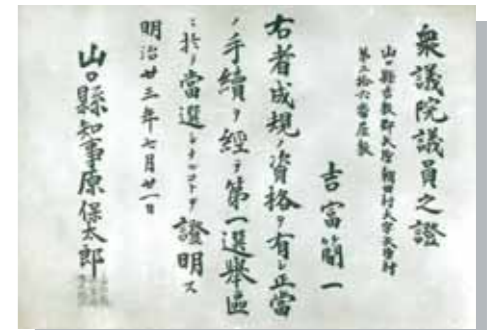 衆議院議員之證
山口縣吉敷郡矢原朝田村大字矢原村
第二拾六番屋敷
吉富簡一
右者成規ノ資格ヲ有シ正當
ノ手續ヲ經テ第一選擧區
ニ於テ當選シタルコトヲ證明ス
明治廿三年七月廿一日
山口縣知事原保太郎